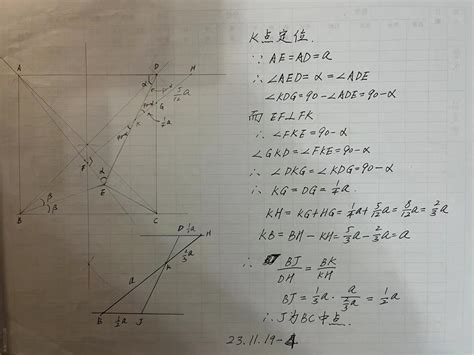 K点定位.
∵ AE=AD=a
∴ ∠AED=α=∠ADE
∠KDG=90-∠ADE=90-α
而 EF⊥FK
∴ ∠FKE=90-α
∠GKD=∠FKE=90-α
∴ ∠DKG=∠KDG=90-α
∴ KG=DG=1/4a.
KH=KG+HG=1/4a+5/12a=8/12a=2/3a
KB=BH-KH=5/3a-2/3a=a
∴ BJ/DH=BK/KH
BJ=1/3a·a/(2/3a)=1/2a
∴ J为BC中点.
23.11.19-4
A
D
H
5/12a
G
1/4a
K
F
α
E
β
β
B
C
D
1/3a
H
2/3a
K
a
B
1/2a
J